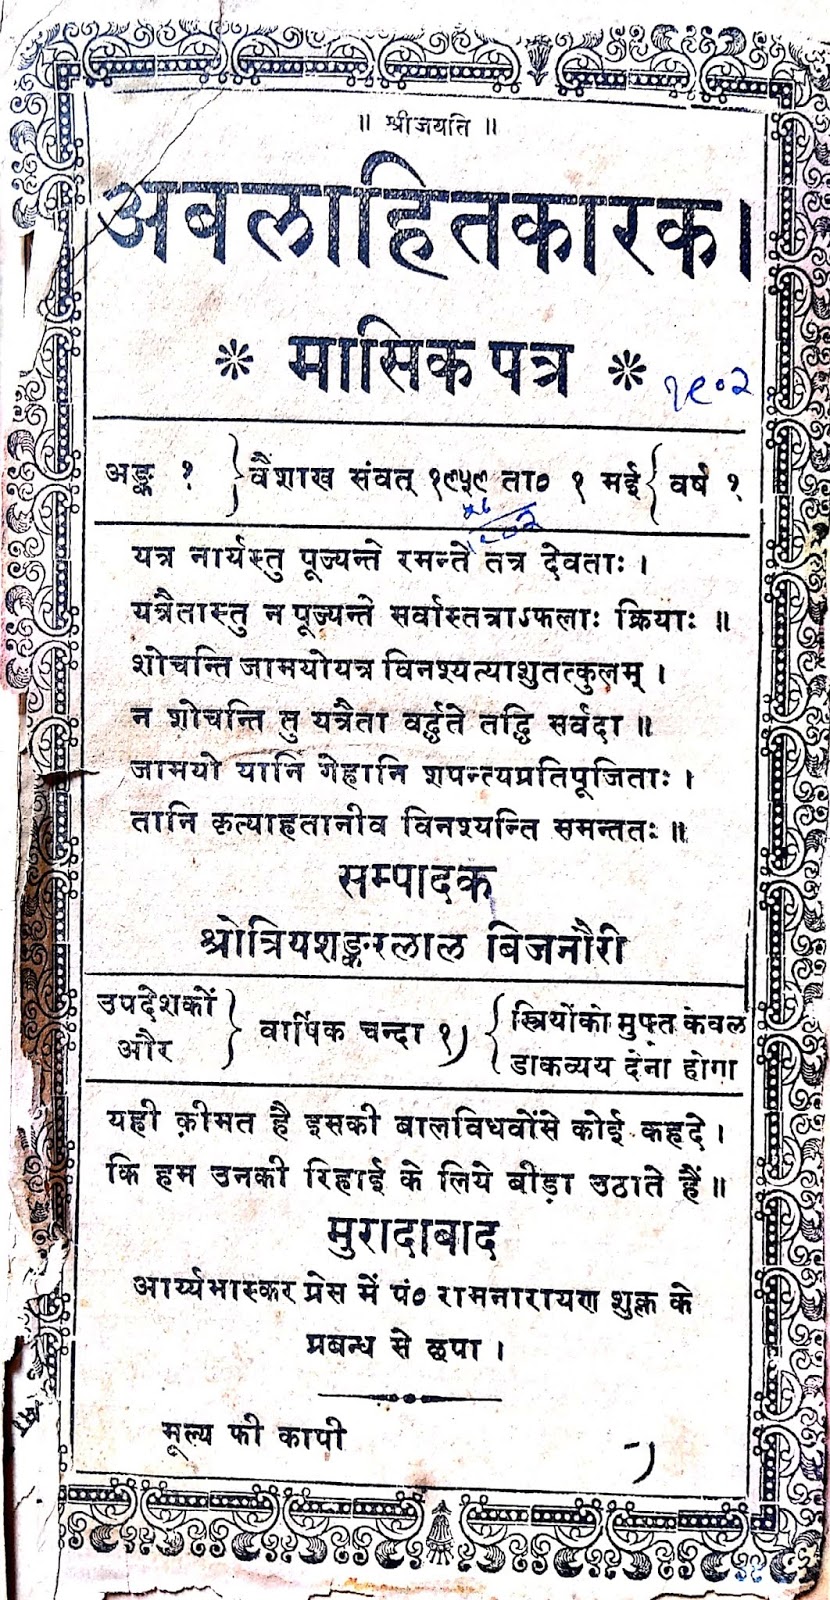 ॥ श्रीजयति ॥
अवलाहितकारक।
मासिक पत्र
१९०२
अङ्क १ } वैशाख संवत् १९५९ ता० १ मई { वर्ष १
यत्र नार्यस्तु पूज्यन्ते रमन्ते तत्र देवताः ।
यत्रैतास्तु न पूज्यन्ते सर्वास्तत्राऽफलाः क्रियाः ॥
शोचन्ति जामयोयत्र विनश्यत्याशुतत्कुलम् ।
न शोचन्ति तु यत्रैता वर्द्धते तद्धि सर्वदा ॥
जामयो यानि गेहानि शपन्त्यप्रतिपूजिताः ।
तानि कृत्याहतानीव विनश्यन्ति समन्ततः ॥
सम्पादक
श्रोत्रियशङ्करलाल बिजनौरी
उपदेशकों और } वार्षिक चन्दा १) { स्त्रियोंको मुफ़्त केवल
डाकव्यय देना होगा
यही क़ीमत है इसकी बालविधवोंसे कोई कहदे ।
कि हम उनकी रिहाई के लिये बीड़ा उठाते हैं ॥
मुरादाबाद
आर्य्यभास्कर प्रेस में पं० रामनारायण शुक्ल के
प्रबन्ध से छपा ।
मूल्य फी कापी -)